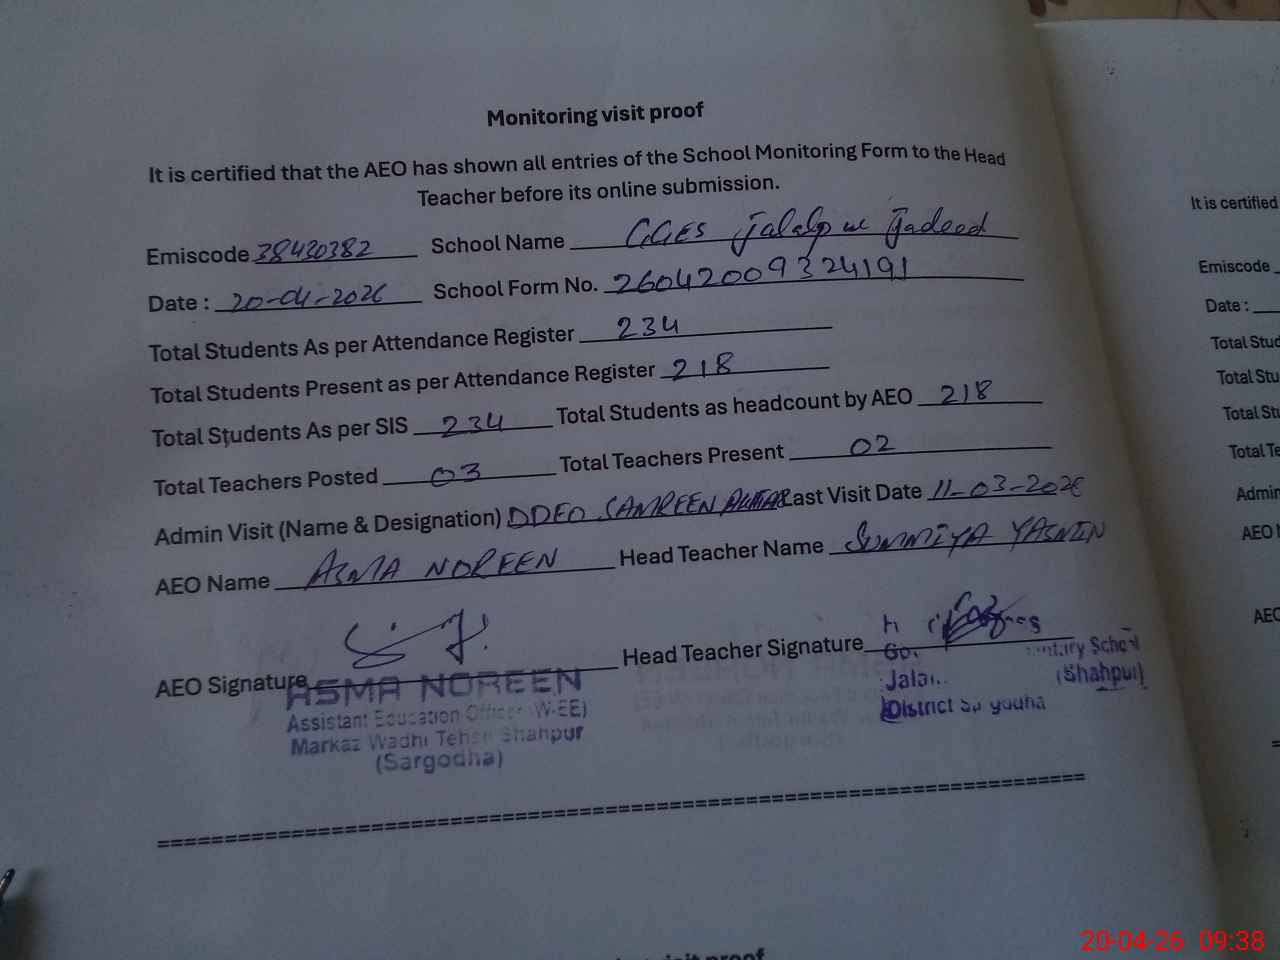 Monitoring visit proof
It is certified that the AEO has shown all entries of the School Monitoring Form to the Head
Teacher before its online submission.
Emiscode 38430382 School Name GGES Jalalpur Jadeed
Date : 20-04-2026 School Form No. 26042009324191
Total Students As per Attendance Register 234
Total Students Present as per Attendance Register 218
Total Students As per SIS 234 Total Students as headcount by AEO 218
Total Teachers Posted 03 Total Teachers Present 02
Admin Visit (Name & Designation) DDEO SAMREEN Last Visit Date 11-03-2026
AEO Name ASMA NOREEN Head Teacher Name SUMMIYA YASMIN
AEO Signature Head Teacher Signature
ASMA NOREEN
Assistant Education Officer (W-EE)
Markaz Wadhi Tehsil Shahpur
(Sargodha)
School
(Shahpur)
District
It is certified
Emiscode
Date :
Total Stud
Total Stu
Total Stu
Total Te
Admin
AEO
AEO
visit proof
20-04-26 09:38